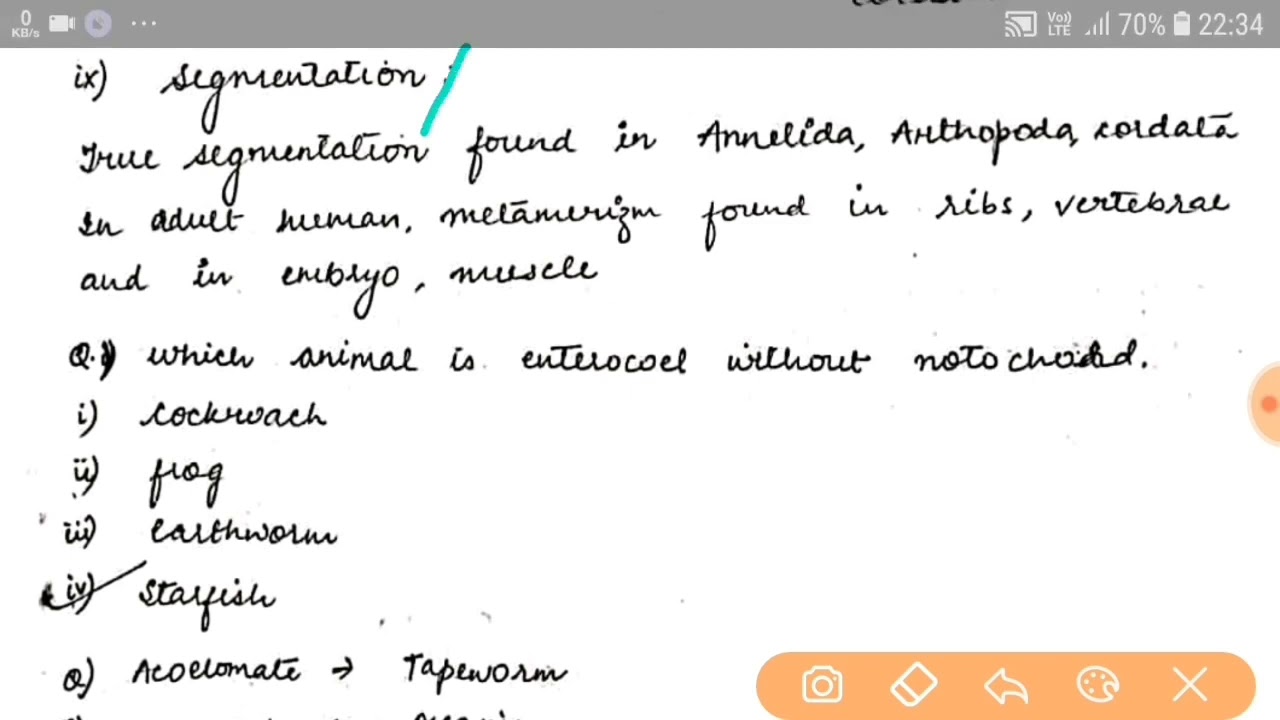 0 KB/s ... Vo)) LTE 70% 22:34
ix) segmentation :
True segmentation found in Annelida, Arthopoda, cordata
In adult human, metamerizm found in ribs, vertebrae
and in embryo, muscle
Q.1) which animal is enterocoel without notochodd.
i) cockroach
ii) frog
iii) earthworm
iv) starfish
Q) Acoelomate → Tapeworm